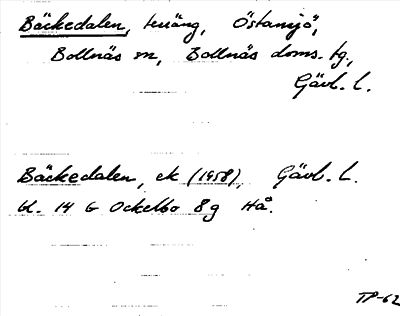 Bäckedalen, terräng, Östansjö,
Bollnäs sn, Bollnäs doms. tg.,
Gävl. L.
Bäckedalen, ek (1958), Gävl. L.
bl. 14 G Ockelbo 8g Hå.
TP-62